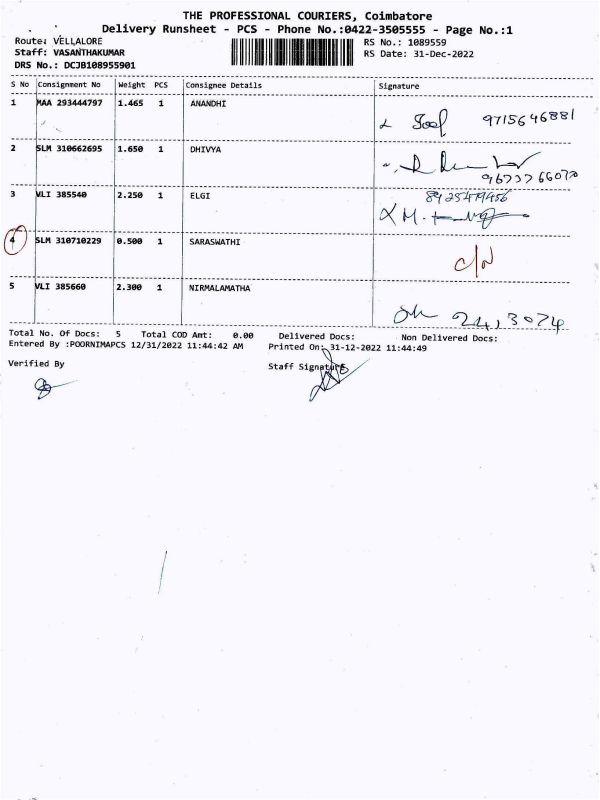 THE PROFESSIONAL COURIERS, Coimbatore
Delivery Runsheet - PCS - Phone No.:0422-3505555 - Page No.:1
Route: VELLALORE
RS No.: 1089559
Staff: VASANTHAKUMAR
RS Date: 31-Dec-2022
DRS No.: DCJB108955901
S No Consignment No Weight PCS Consignee Details Signature
1 MAA 293444797 1.465 1 ANANDHI 9715646881
2 SLM 310662695 1.650 1 DHIVYA
3 VLI 385540 2.250 1 ELGI
4 SLM 310710229 0.500 1 SARASWATHI C/N
5 VLI 385660 2.300 1 NIRMALAMATHA
Total No. Of Docs: 5 Total COD Amt: 0.00 Delivered Docs: Non Delivered Docs:
Entered By :POORNIMAPCS 12/31/2022 11:44:42 AM Printed On: 31-12-2022 11:44:49
Verified By Staff Signature